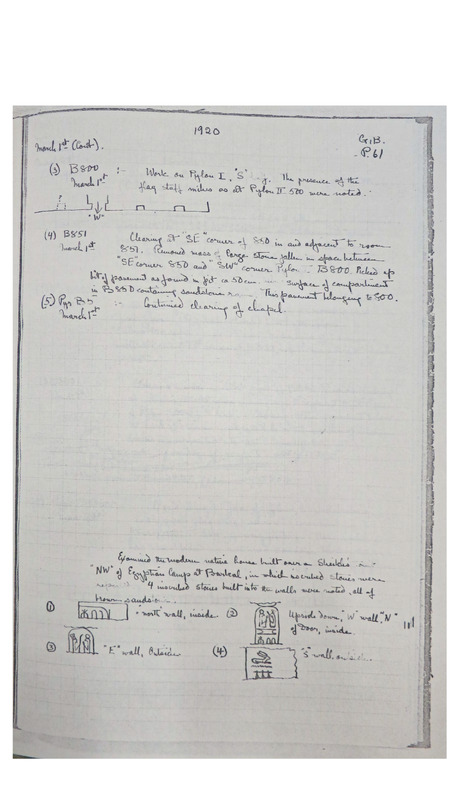 1920
March 1st (Cont).
G.B.
P. 61
(3) B800 :- Work on Pylon I, "S" The presence of the
March 1st flag staff niches as at Pylon II 500 were noted.
"W"
(4) B851 Clearing at "SE" corner of 850 in and adjacent to room
March 1st 851. Removed mass of large stones fallen in space between
"SE" corner 850 and "SW" corner Pylon B800. Picked up
bit of pavement as found in ca 50 cm surface of compartment
in B850 containing sandstone This pavement belongs 800.
(5) Pyr B5 :- Continued clearing of chapel.
March 1st
Examined the modern native house built over a Sheikhs
"NW" of Egyptian Camp at Barkal, in which inscribed stones were
4 inscribed stones built into the walls were noted, all of
brown
(1) "north" wall, inside. (2) Upside down, "W" wall "N"
of Door, inside.
(3) "E" wall, Outside (4) "S" wall